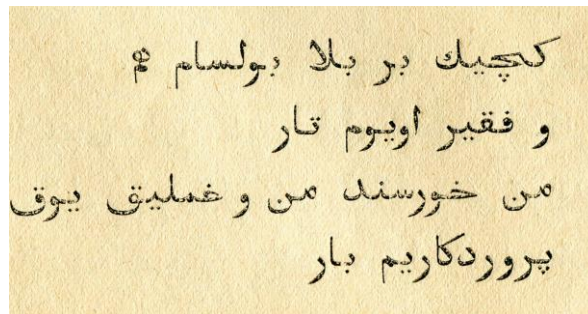 كچيك بر بلا بولسام هم
و فقير اويوم تار
من خورسند من و غمليق يوق
پروردكاريم بار